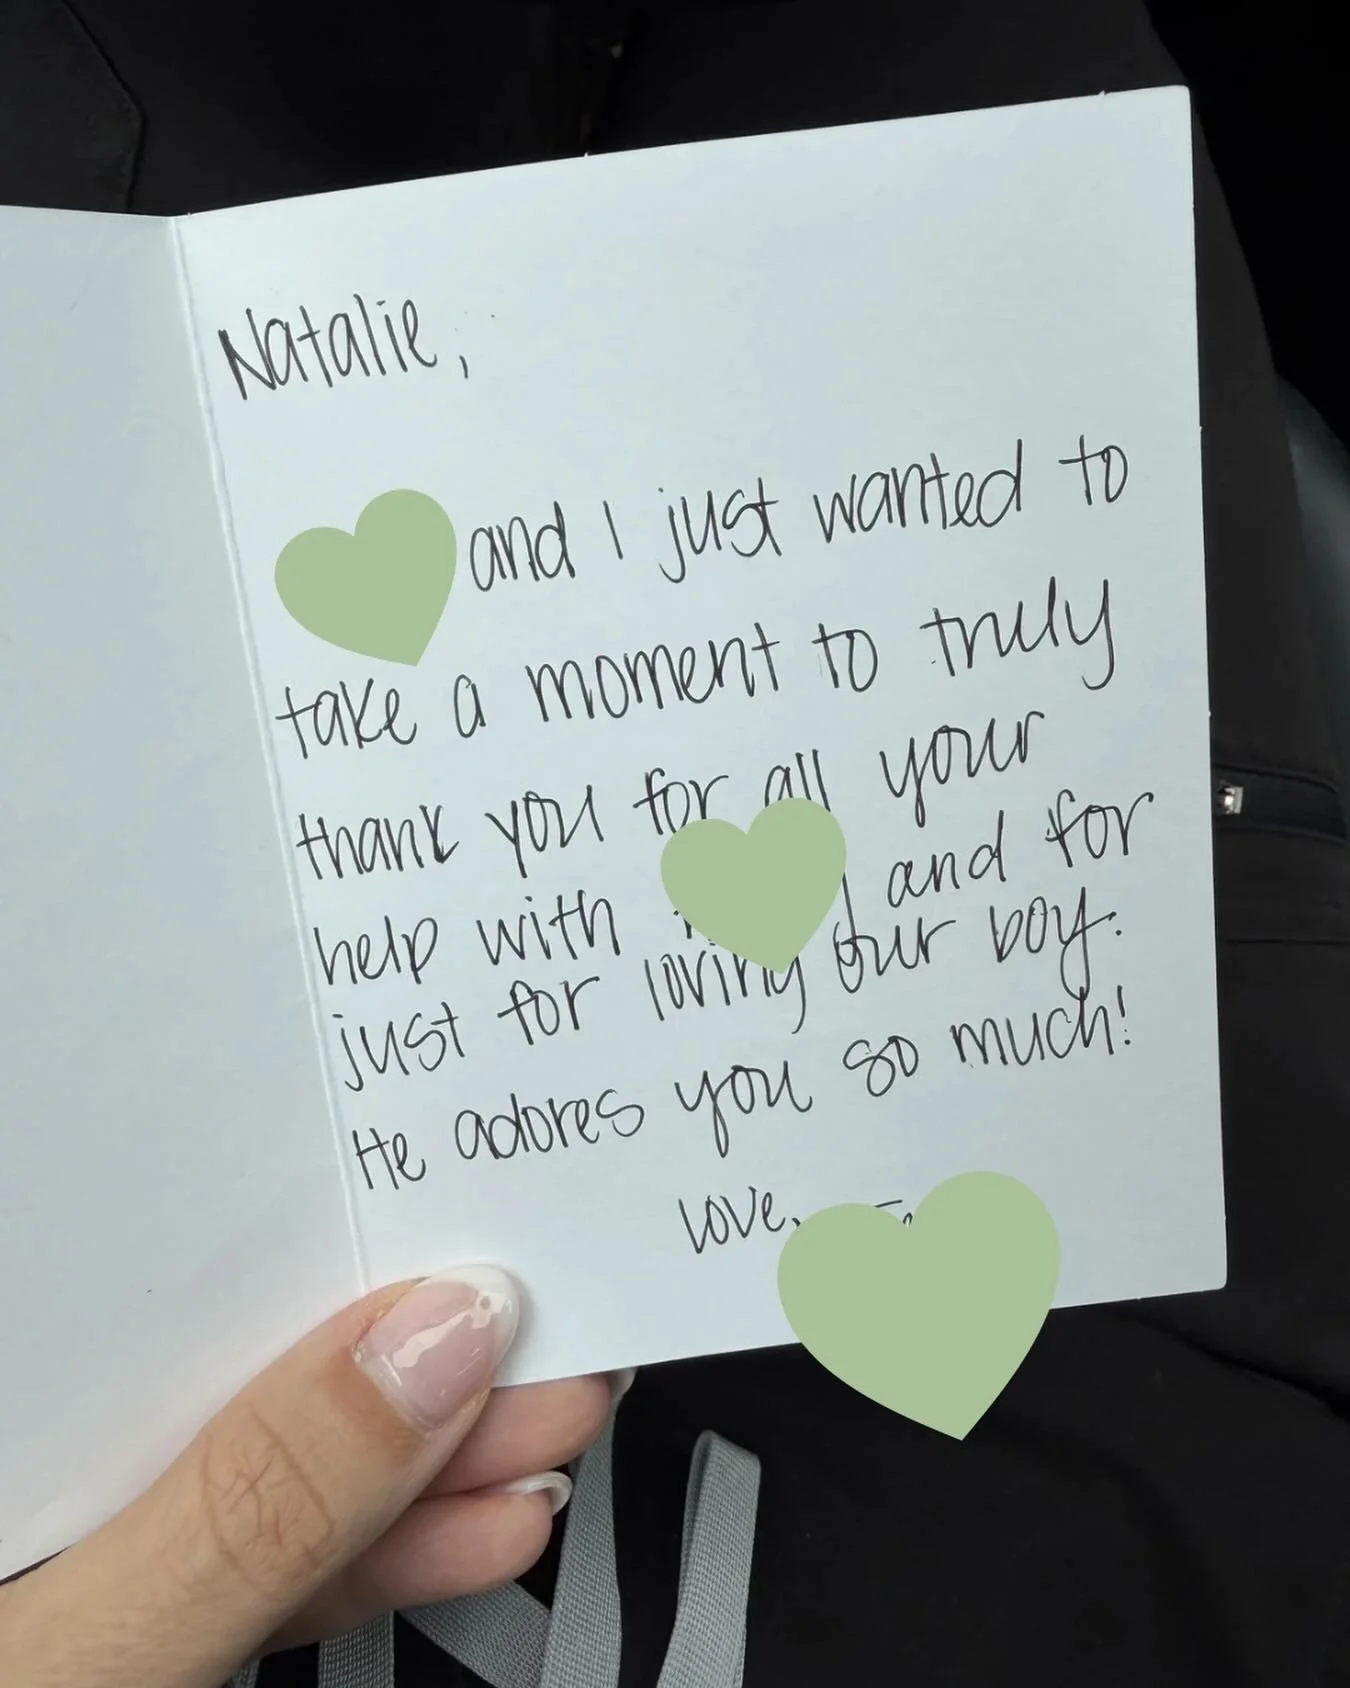 Natalie,
and I just wanted to
take a moment to truly
thank you for all your
help with and for
just for loving our boy.
He adores you so much!
Love,